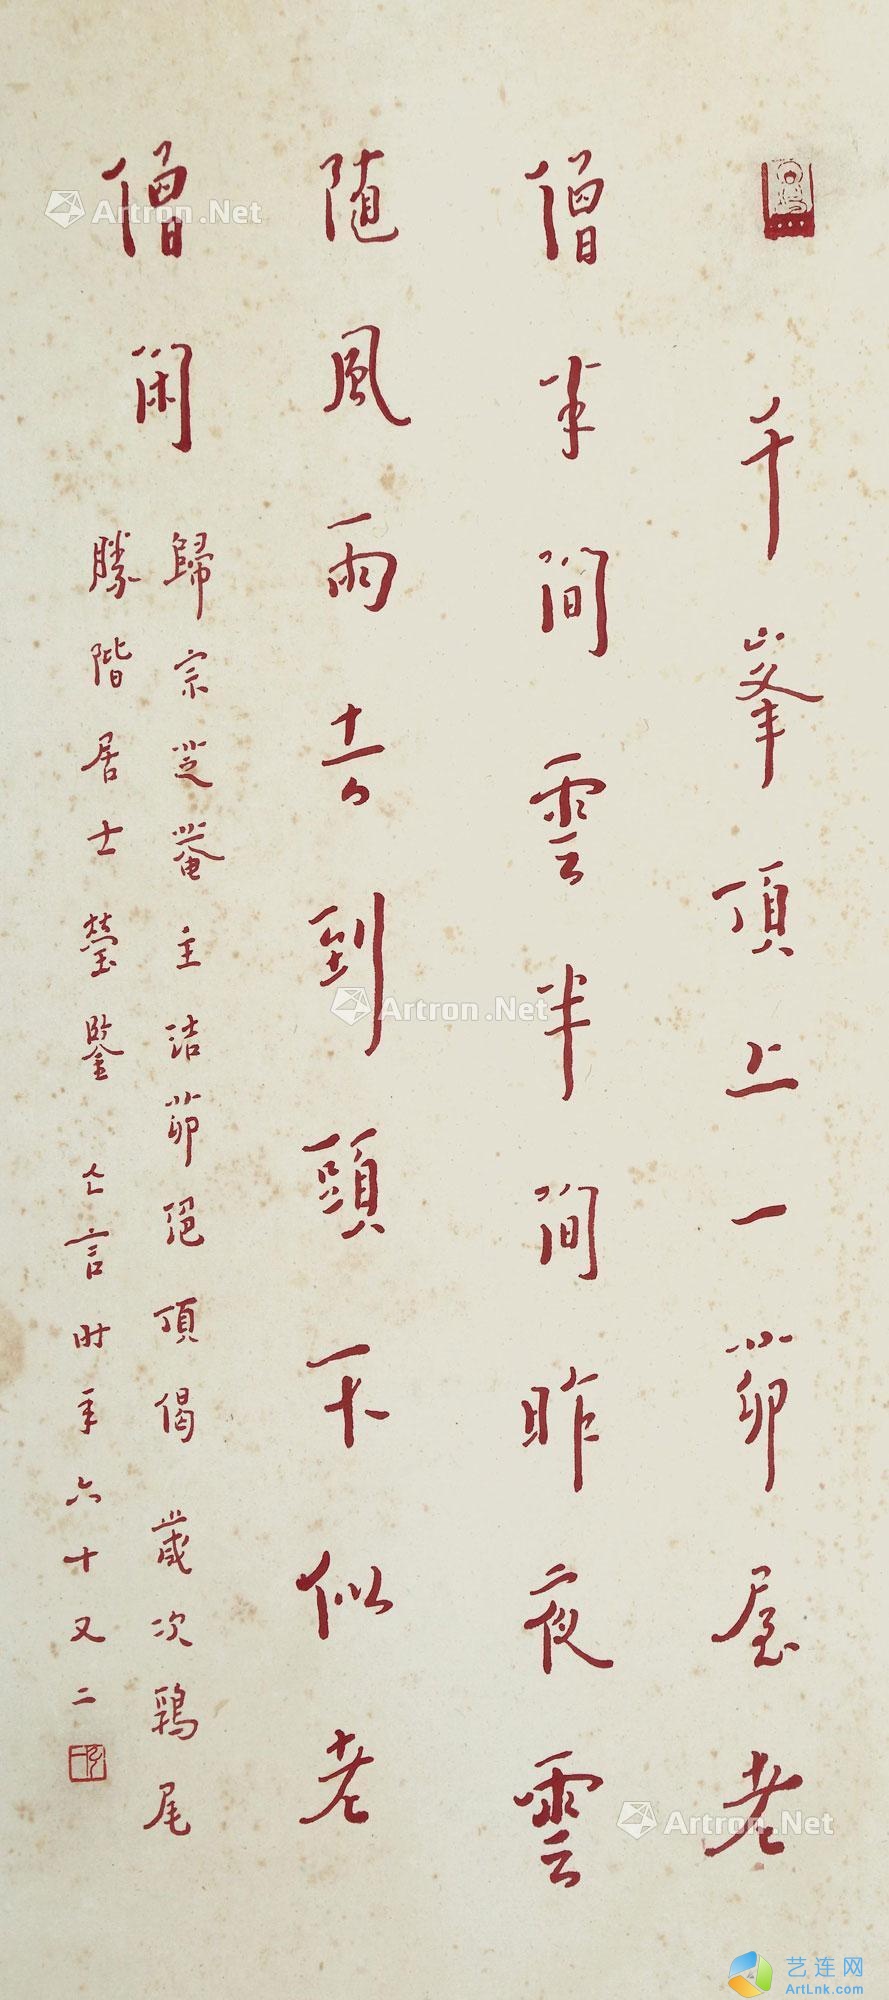 千峯頂上一茆屋老
僧半間雲半間昨夜雲
随風雨去到頭不似老
僧閑
歸宗芝菴主结茆絕頂偈 歲次鶉尾
勝階居士瑩鑒 亡言时年六十又二
Artron.Net
Artron.Net
Artron.Net
艺连网
ArtLnk.com